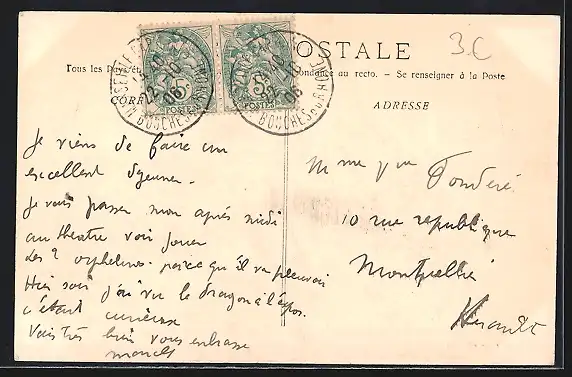 POSTALE
3.C
Tous les Pays étr
ondance au recto. - Se renseigner à la Poste
CORR
ADRESSE
MARSEILLE
BOUCHES DU RHONE
22-10
06
5c
POSTES
POSTES
Je viens de faire un
excellent dejeuner.
Je vais passer mon après midi
au theatre voir jouer
les 2 orphelines. parce qu'il va pleuvoir
Hier soir j'ai vu le dragon à l'expos.
c'était curieux
Vais très bien vous embrasse
Mme
10 rue republique
Montpellier
Herault